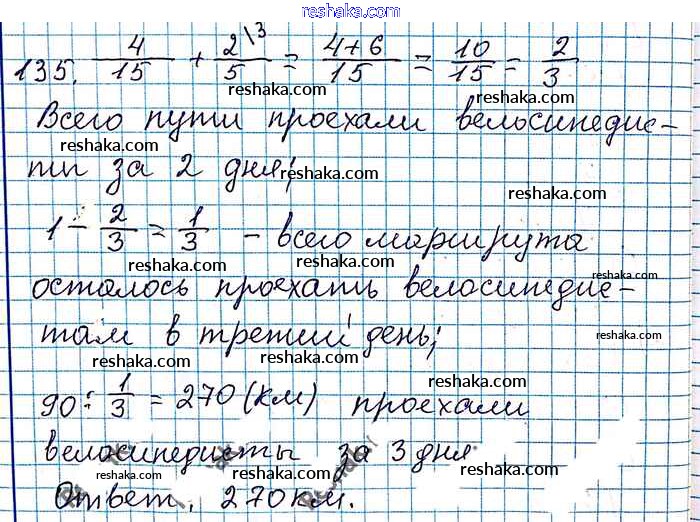 reshaka.com
135. 4/15 + 2\3/5 = 4+6/15 = 10/15 = 2/3
reshaka.com reshaka.com
reshaka.com
Всего пути проехали велосипедис-
reshaka.com
ты за 2 дня;
reshaka.com reshaka.com
1 - 2/3 = 1/3 - всего маршрута
reshaka.com reshaka.com
reshaka.com
осталось проехать велосипедис-
reshaka.com
там в третий день;
reshaka.com
reshaka.com reshaka.com
90 : 1/3 = 270 (км) проехали
reshaka.com reshaka.com
велосипедисты за 3 дня
reshaka.com
reshaka.com reshaka.com
Ответ. 270 км.
reshaka.com